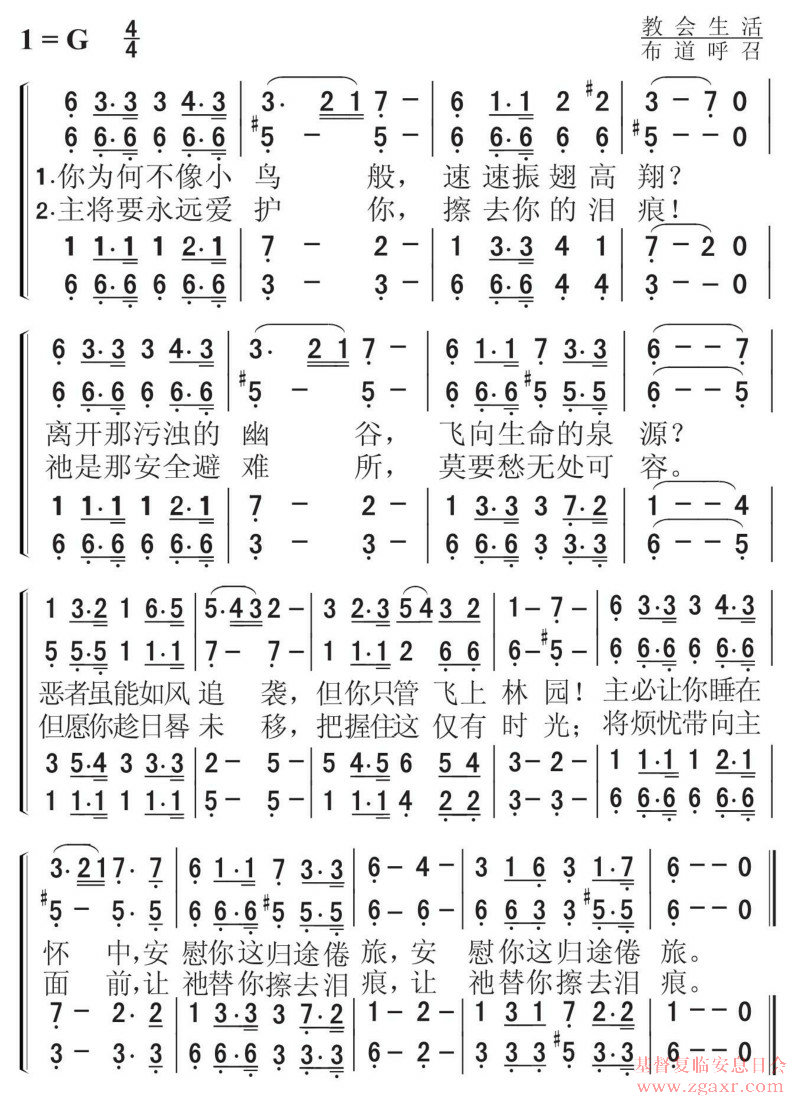 1=G 4/4 教会生活
布道呼召
6 3·3 3 4·3 | 3· 2 1 7 – | 6 1·1 2 #2 | 3 – – 7 0
6 6·6 6 6·6 | #5 – – 5 – | 6 6·6 6 6 | #5 – – – 0
1.你为何不像小鸟般，速速振翅高翔？
2.主将要永远爱护你，擦去你的泪痕！
1 1·1 1 2·1 | 7 – – 2 – | 1 3·3 4 1 | 7 – – 2 0
6 6·6 6 6·6 | 3 – – 3 – | 6 6·6 4 4 | 3 – – – 0
6 3·3 3 4·3 | 3· 2 1 7 – | 6 1·1 7 3·3 | 6 – – 7
6 6·6 6 6·6 | #5 – – 5 – | 6 6·6 #5 5·5 | 6 – – 5
离开那污浊的幽谷，飞向生命的泉源？
祂是那安全避难所，莫要愁无处可容。
1 1·1 1 2·1 | 7 – – 2 – | 1 3·3 3 7·2 | 1 – – 4
6 6·6 6 6·6 | 3 – – 3 – | 6 6·6 3 3·3 | 6 – – 5
1 3·2 1 6·5 | 5·4 3 2 – | 3 2·3 5 4 3 2 | 1 – 7 – | 6 3·3 3 4·3
5 5·5 1 1·1 | 7 – 7 – | 1 1·1 2 6 6 | 6 – #5 – | 6 6·6 6 6·6
恶者虽能如风追袭，但你只管飞上林园！主必让你睡在
但愿你趁日晷未移，把握住这仅有时光；将烦忧带向主
3 5·4 3 3·3 | 2 – 5 – | 5 4·5 6 5 4 | 3 – 2 – | 1 1·1 1 2·1
1 1·1 1 1·1 | 5 – 5 – | 1 1·1 4 2 2 | 3 – 3 – | 6 6·6 6 6·6
3·2 1 7· 7 | 6 1·1 7 3·3 | 6 – 4 – | 3 1 6 3 1·7 | 6 – – 0
#5 – 5· 5 | 6 6·6 #5 5·5 | 6 – 6 – | 6 6 3 3 #5·5 | 6 – – 0
怀中，安慰你这归途倦旅，安慰你这归途倦旅。
面前，让祂替你擦去泪痕，让祂替你擦去泪痕。
7 – 2· 2 | 1 3·3 3 7·2 | 1 – 2 – | 1 3 1 7 2·2 | 1 – – 0
3 – 3· 3 | 6 6·6 3 3·3 | 6 – 2 – | 3 3 #5 3·3 | 6 – – 0
基督复临安息日会
www.zgaxr.com